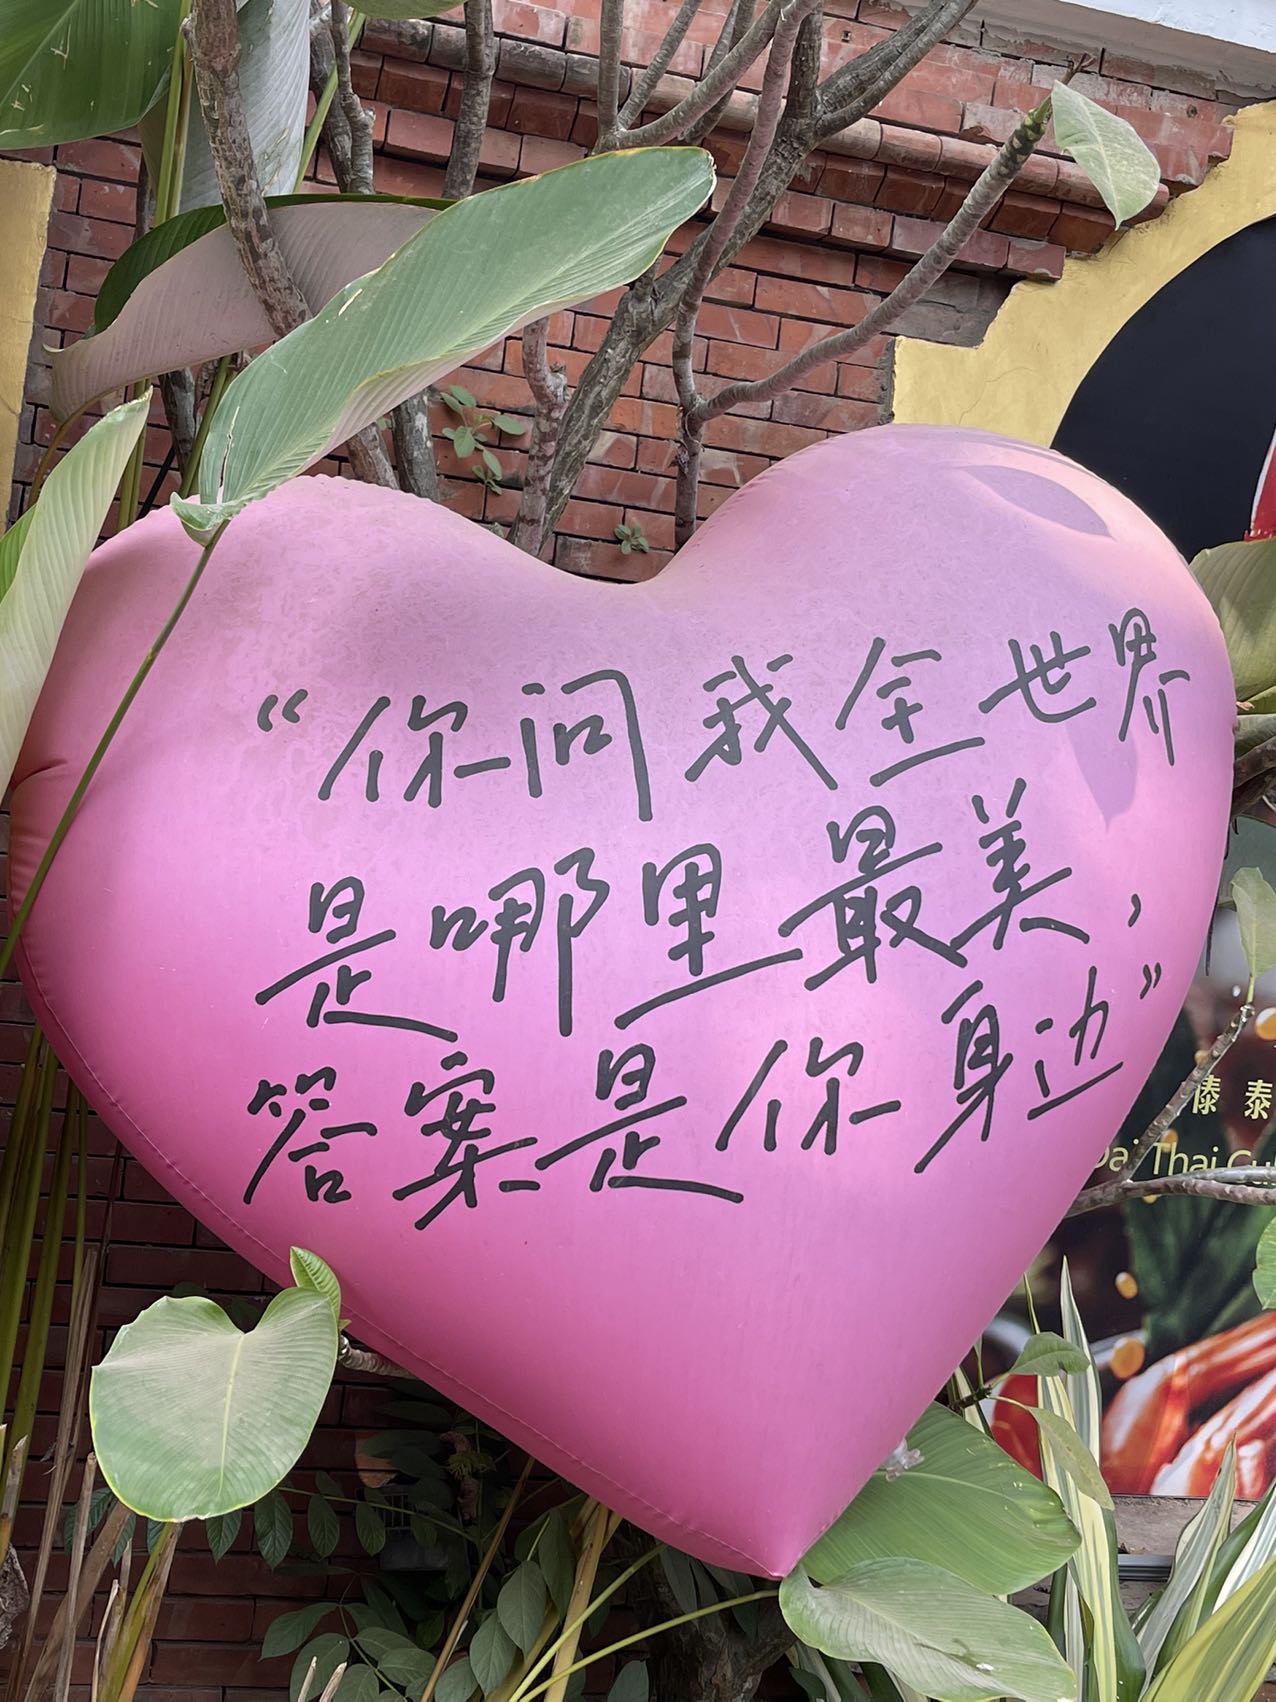 “你问我全世界
是哪里最美，
答案是你身边”
傣泰
Dai Thai Cu